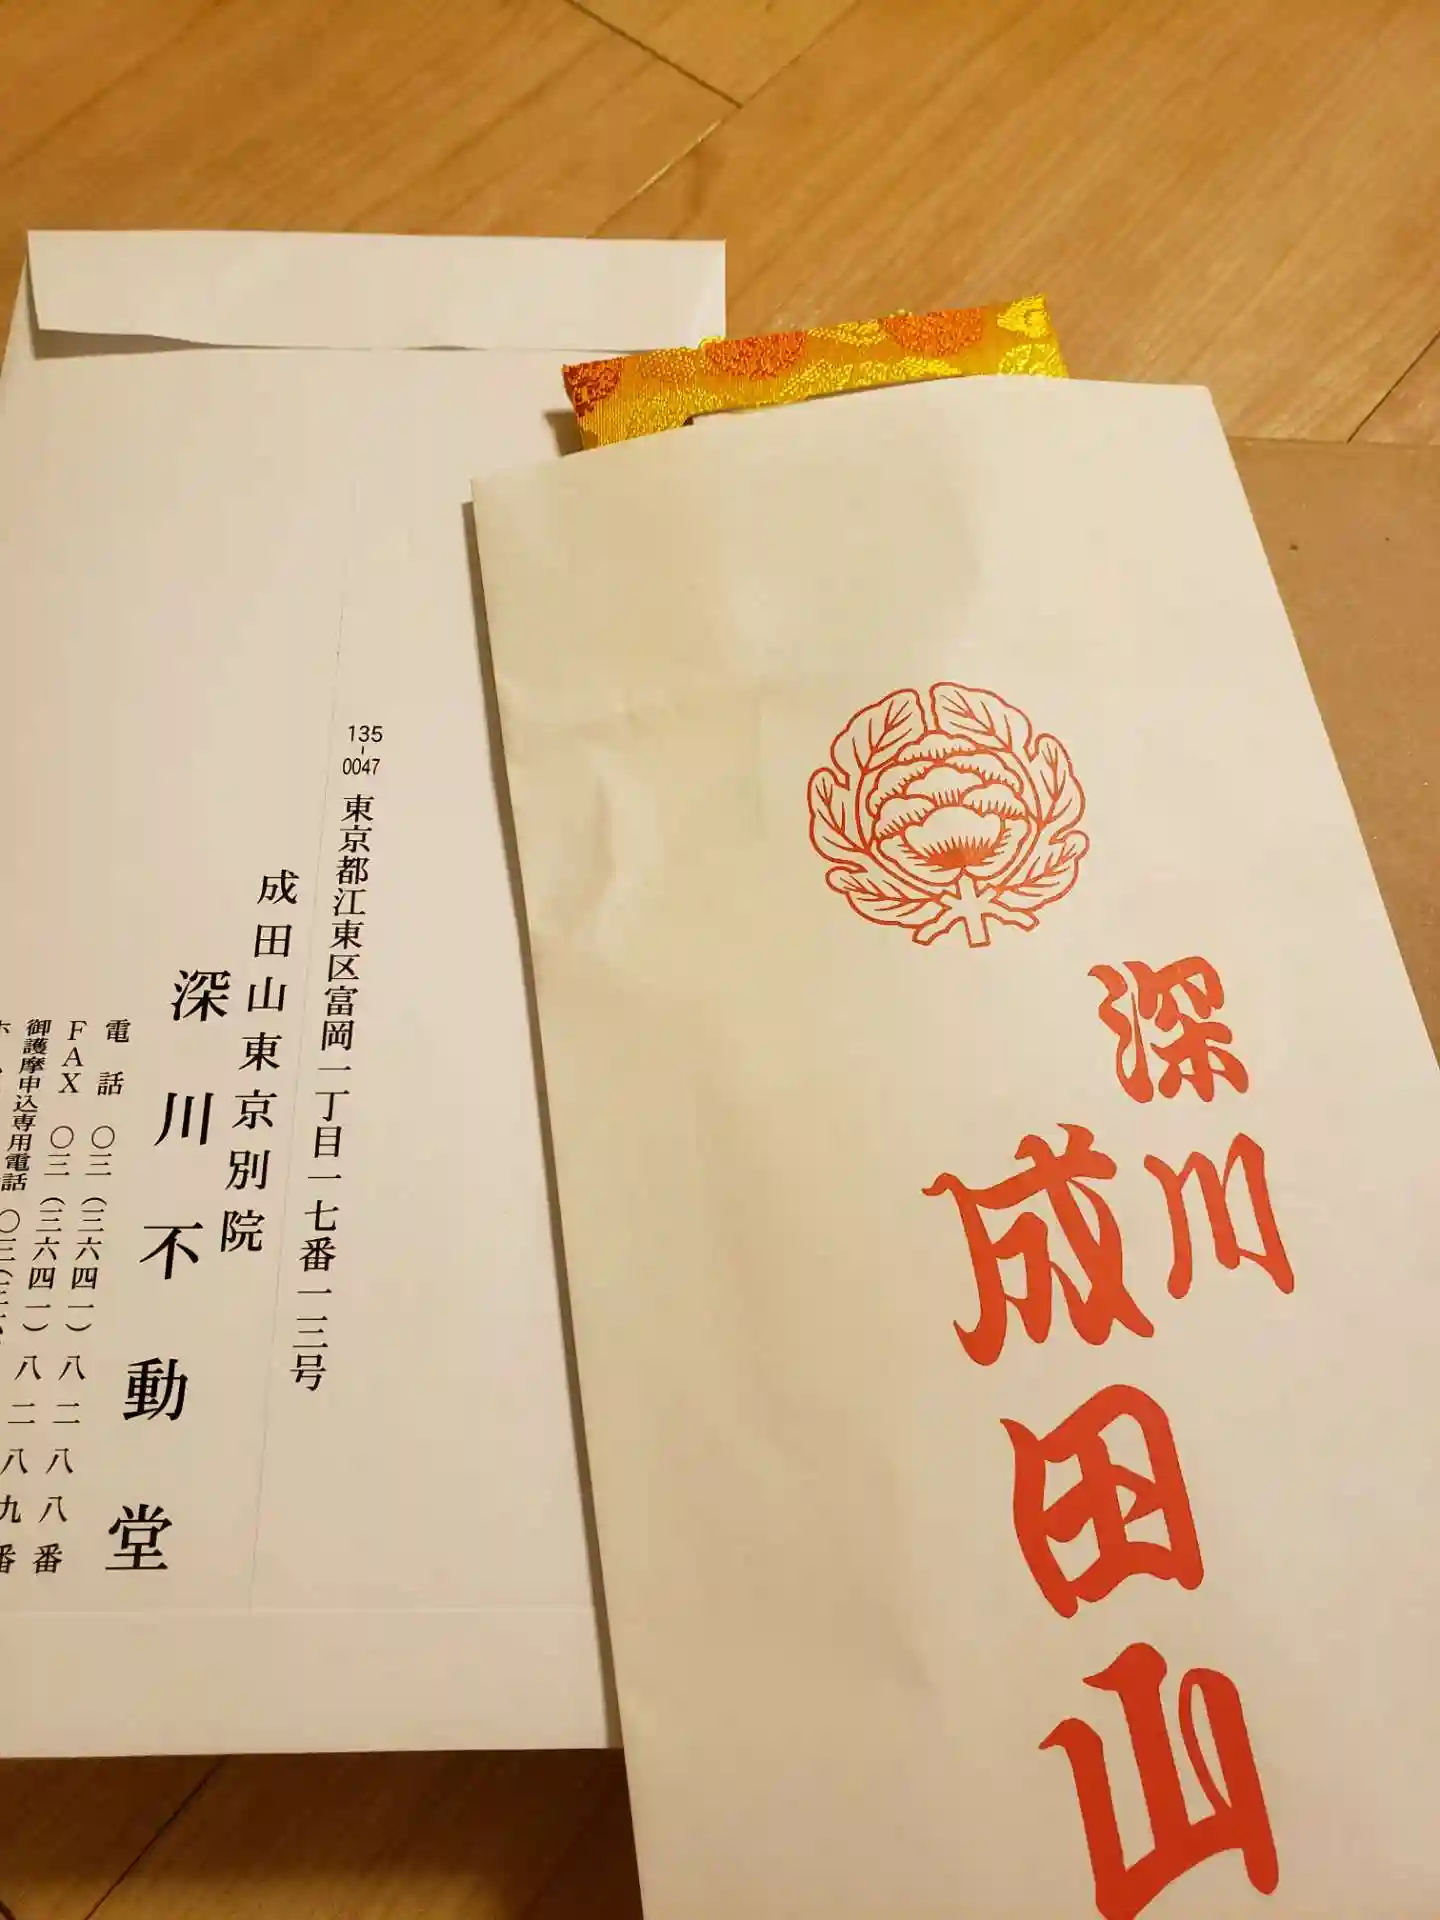 135-0047
東京都江東区富岡一丁目一七番一三号
成田山東京別院
深川不動堂
電話 〇三(三六四一)八二八八番
FAX 〇三(三六四一)八二八九番
御護摩申込専用電話 〇三(三六
深川
成田山